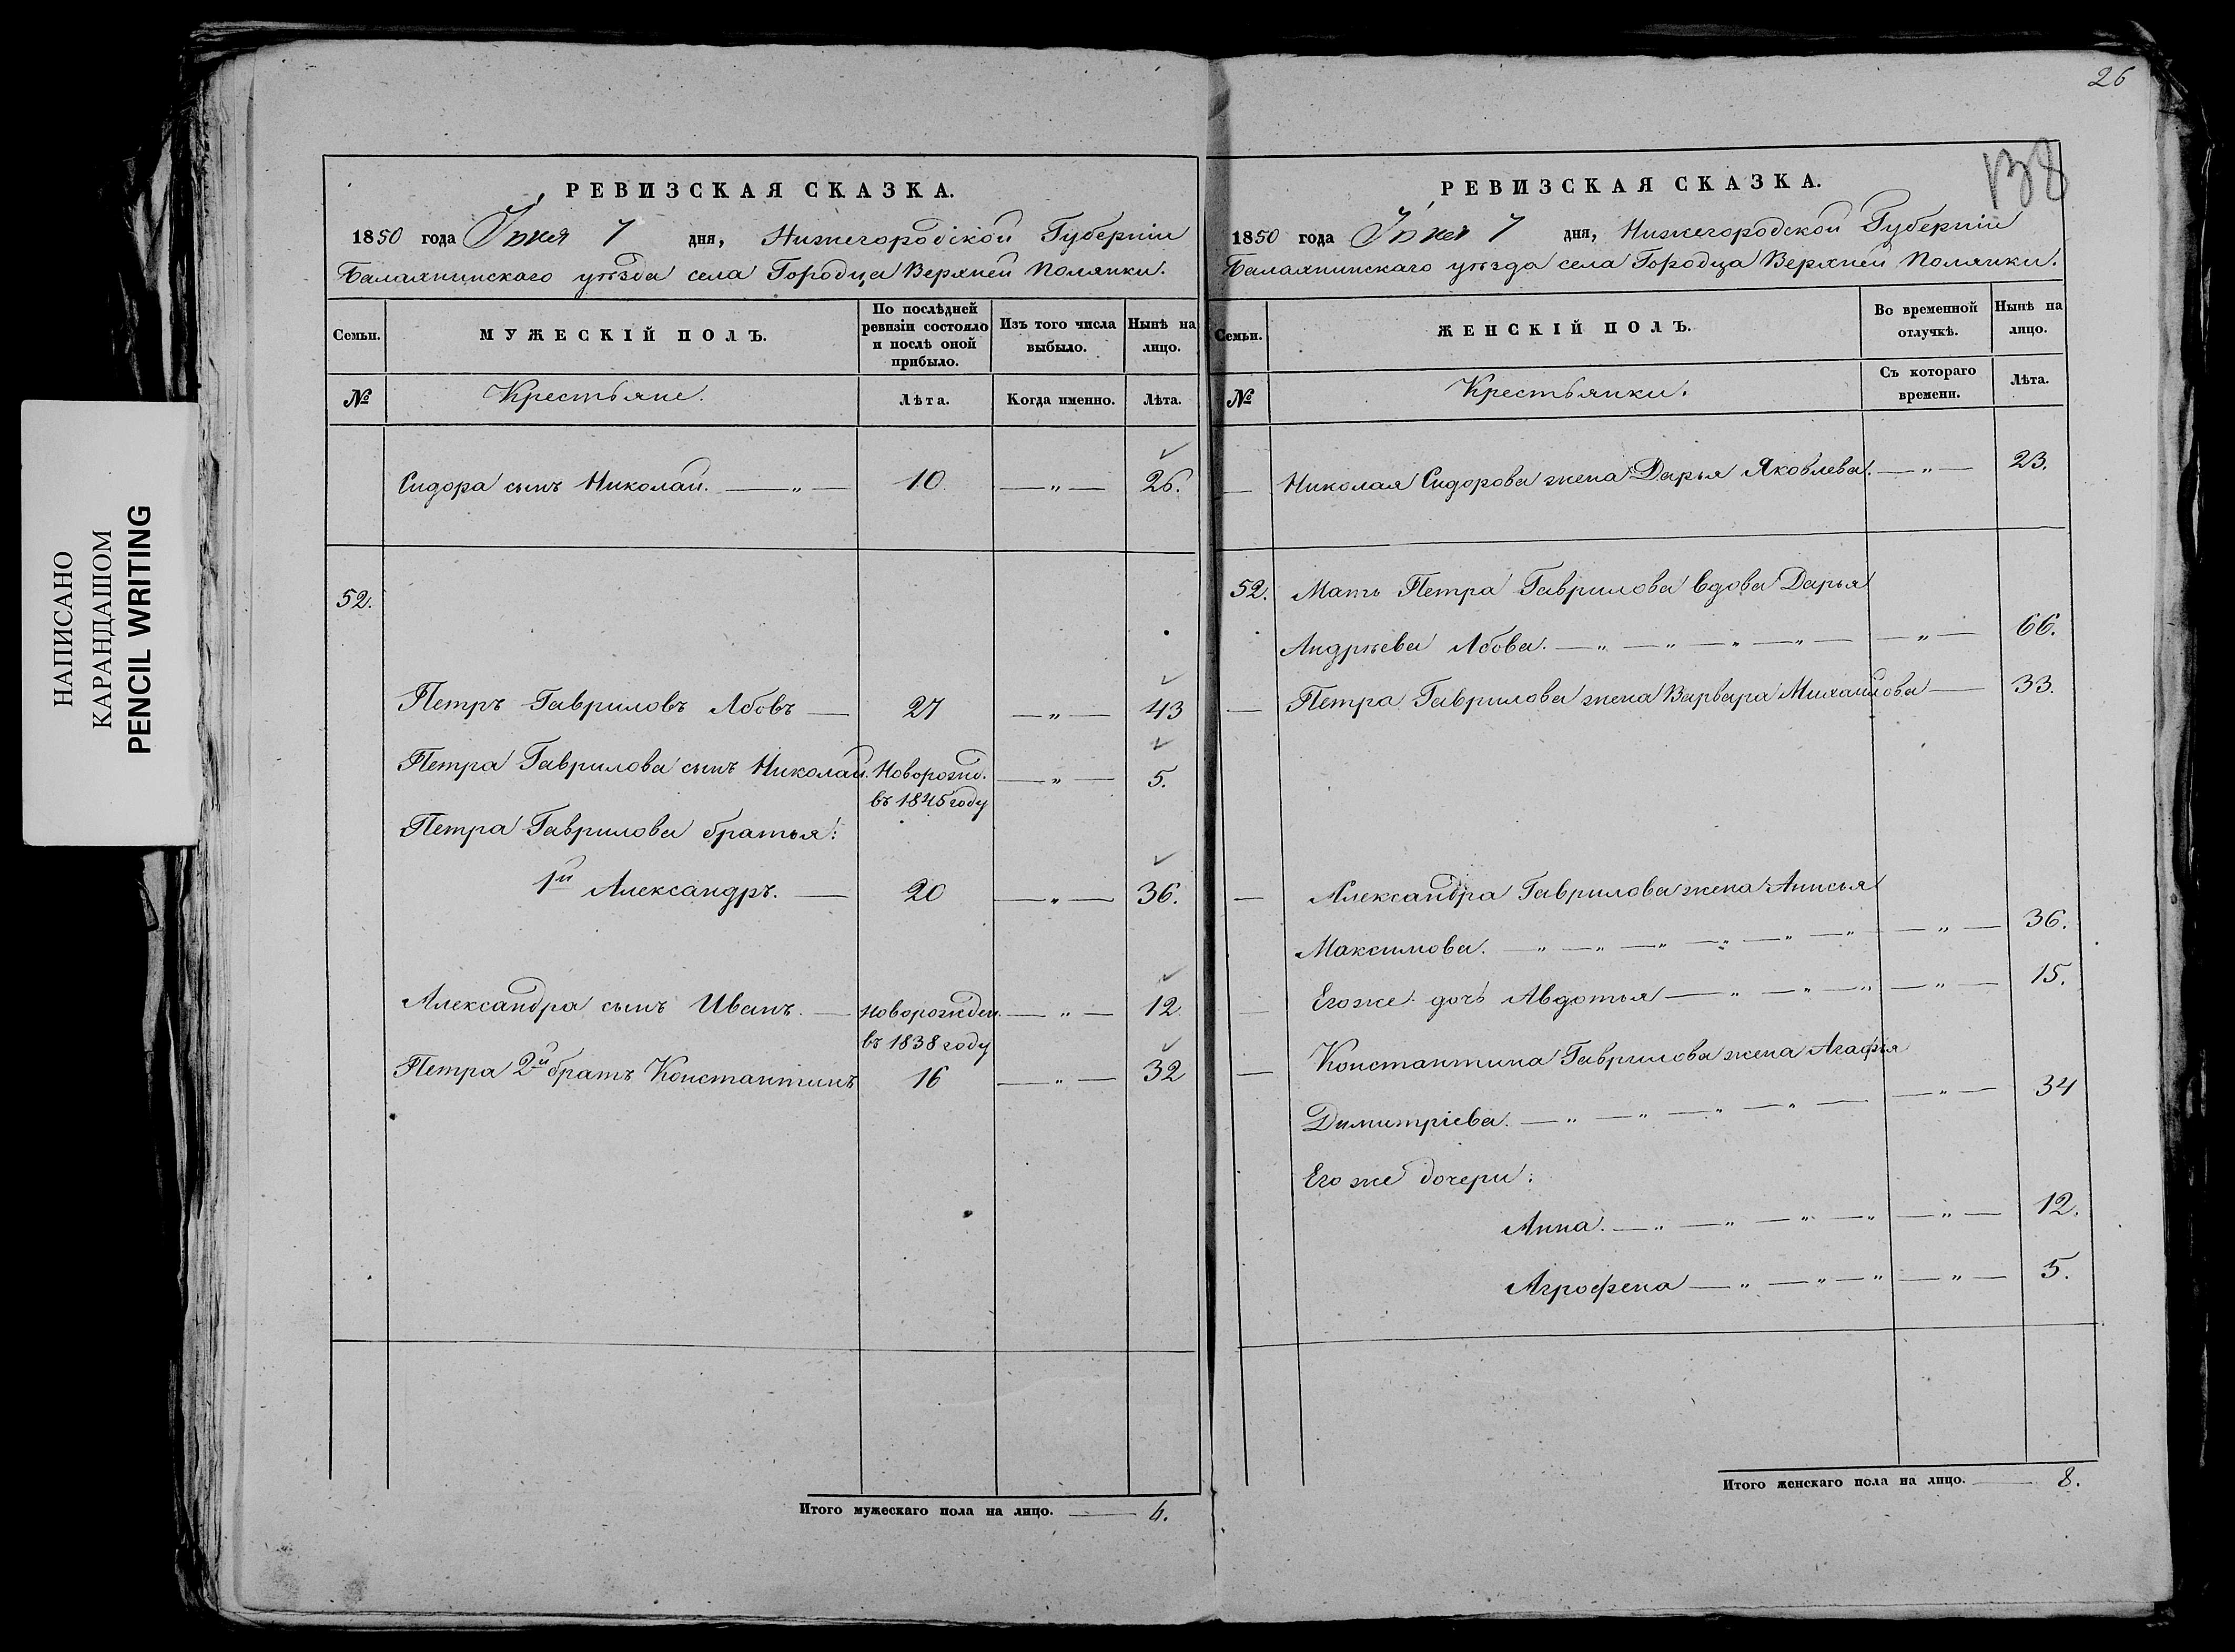 НАПИСАНО
КАРАНДАШОМ
PENCIL WRITING
РЕВИЗСКАЯ СКАЗКА.
1850 года Іюня 7 дня, Нижегородской Губерніи
Балахнинскаго уѣзда села Городца Верхней Полянки.
Семьи.
МУЖЕСКІЙ ПОЛЪ.
По послѣдней
ревизіи состояло
и послѣ оной
прибыло.
Изъ того числа
выбыло.
Нынѣ на
лицо.
№ Крестьяне. Лѣта. Когда именно. Лѣта.
Сидора сынъ Николай. — „ — 10 — „ — 26.
52.
Петръ Гавриловъ Лбовъ — 27 — „ — 43
Петра Гаврилова сынъ Николай. Новорожд. — „ — 5.
въ 1845 году
Петра Гаврилова братья:
1й Александръ. — 20 — „ — 36.
Александра сынъ Иванъ. — Новорожден. — „ — 12
въ 1838 году
Петра 2й братъ Константинъ 16 — „ — 32
Итого мужескаго пола на лицо. — 6.
26
138
РЕВИЗСКАЯ СКАЗКА.
1850 года Іюня 7 дня, Нижегородской Губерніи
Балахнинскаго уѣзда села Городца Верхней Полянки.
Семьи.
ЖЕНСКІЙ ПОЛЪ.
Во временной
отлучкѣ.
Нынѣ на
лицо.
№ Крестьянки.
Съ котораго
времени.
Лѣта.
— Николая Сидорова жена Дарья Яковлева. — „ — 23.
52. Мать Петра Гаврилова вдова Дарья
Андрѣева Лбова. — „ — „ — „ — „ — — „ — 66.
— Петра Гаврилова жена Варвара Михайлова — 33.
— Александра Гаврилова жена Анисья
Максимова. — „ — „ — „ — „ — „ — „ — „ — 36.
— Его же дочь Авдотья — „ — „ — „ — „ — 15.
— Константина Гаврилова жена Агафья
Димитріева. — „ — „ — „ — „ — — „ — 34
Его же дочери:
Анна. — „ — „ — „ — „ — „ — 12.
Агрофена — „ — „ — „ — „ — 5.
Итого женскаго пола на лицо. — 8.